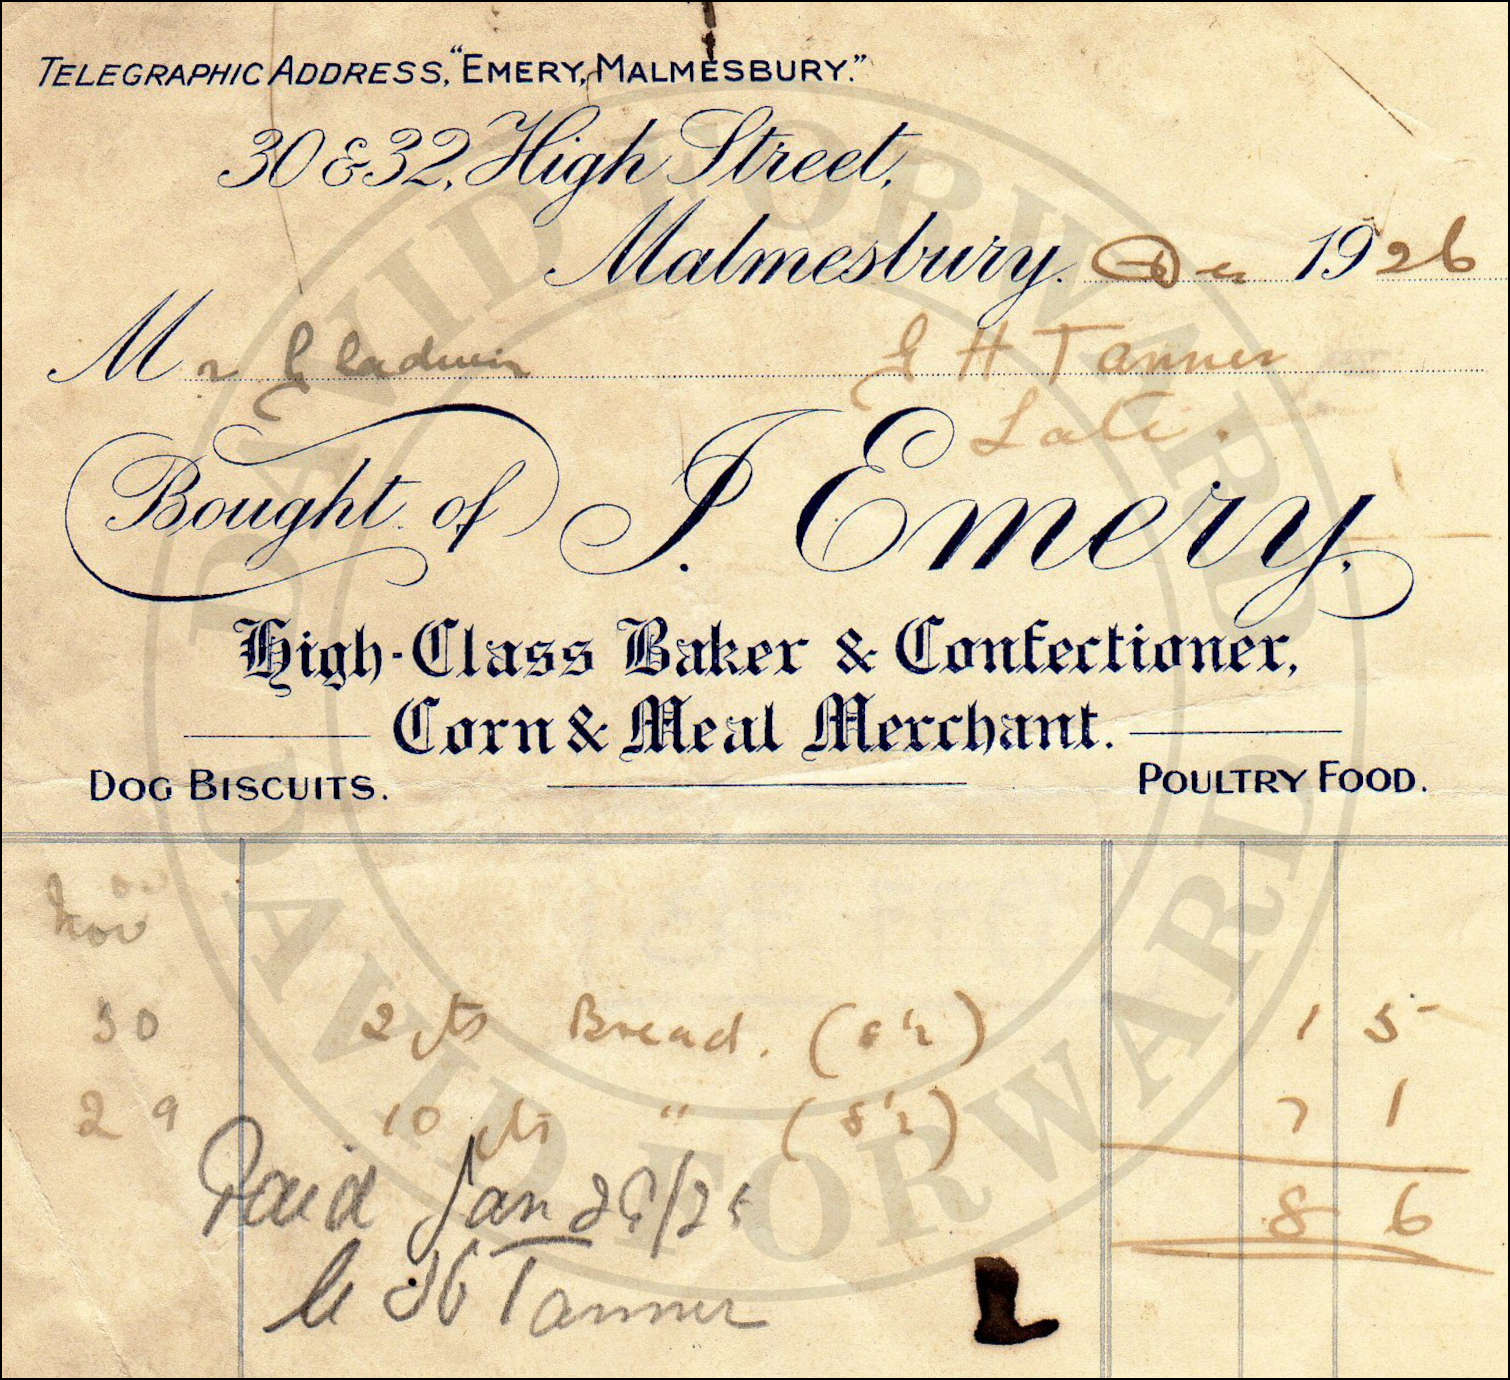 TELEGRAPHIC ADDRESS, "EMERY, MALMESBURY."
30 & 32, High Street,
Malmesbury. Dec 1926
Mr Gladwin
G H Tanner
Late.
Bought of J. Emery,
High-Class Baker & Confectioner,
Corn & Meal Merchant.
DOG BISCUITS. POULTRY FOOD.
Nov
30 2 Bread. (8½) 1 5
29 10 " (8½) 7 1
8 6
Paid Jan 28/25
G H Tanner
DAVID FORWARD
DAVID FORWARD